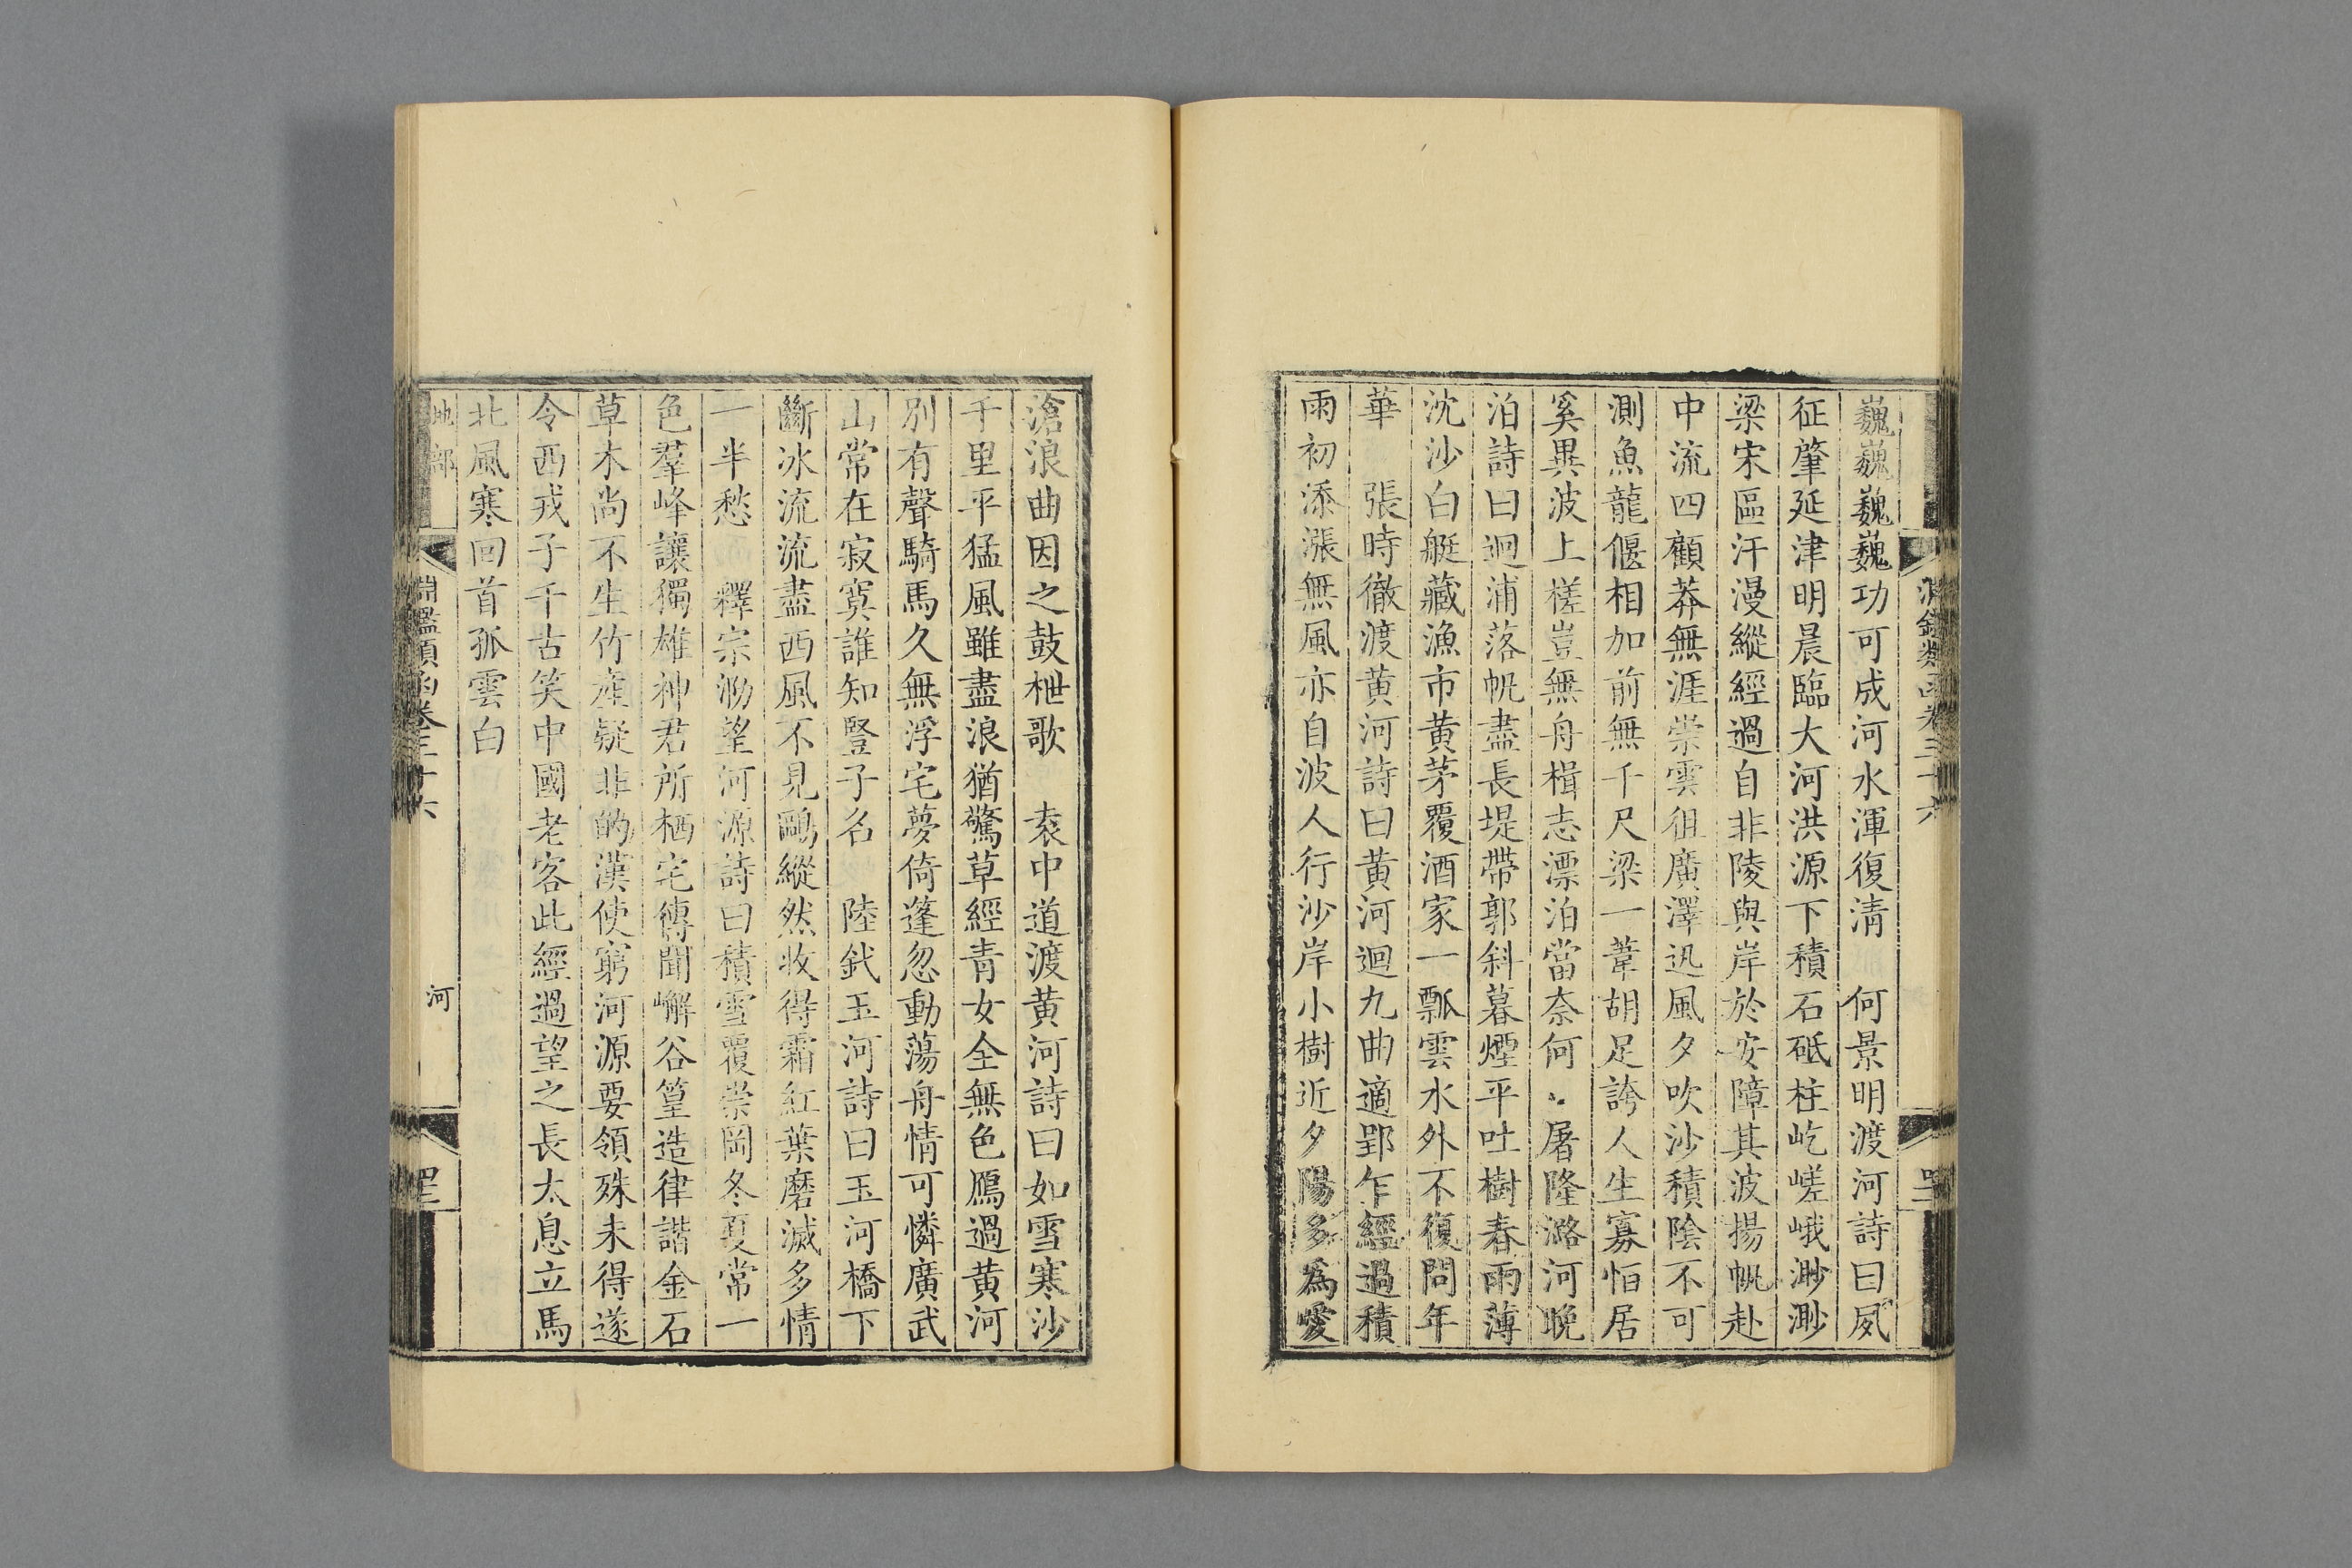 淵鑑類函卷三十六
巍巍巍巍功可成河水渾復清　何景明渡河詩曰夙
征肇延津明晨臨大河洪源下積石砥柱屹嵯峨渺渺
梁宋區汗漫縱經過自非陵與岸於安障其波揚帆赴
中流四顧莽無涯崇雲徂廣澤迅風夕吹沙積陰不可
測魚龍偃相加前無千尺梁一葦胡足誇人生寡恒居
奚異波上槎豈無舟楫志漂泊當奈何　屠隆潞河晚
泊詩曰迴浦落帆盡長堤帶郭斜暮煙平吐樹春雨薄
沈沙白艇藏漁市黃茅覆酒家一瓢雲水外不復問年
華　張時徹渡黃河詩曰黃河迴九曲適郢乍經過積
雨初添漲無風亦自波人行沙岸小樹近夕陽多為愛
滄浪曲因之鼓枻歌　袁中道渡黃河詩曰如雪寒沙
千里平猛風雖盡浪猶驚草經青女全無色鴈過黃河
別有聲騎馬久無浮宅夢倚蓬忽動蕩舟情可憐廣武
山常在寂寞誰知豎子名　陸釴玉河詩曰玉河橋下
斷冰流流盡西風不見鷗縱然收得霜紅葉磨滅多情
一半愁　釋宗泐望河源詩曰積雪覆崇岡冬夏常一
色羣峰讓獨雄神君所栖宅傳聞嶰谷篁造律諧金石
草木尚不生竹產疑非的漢使窮河源要領殊未得遂
令西戎子千古笑中國老客此經過望之長太息立馬
北風寒回首孤雲白
地部
淵鑑類函卷三十六
河